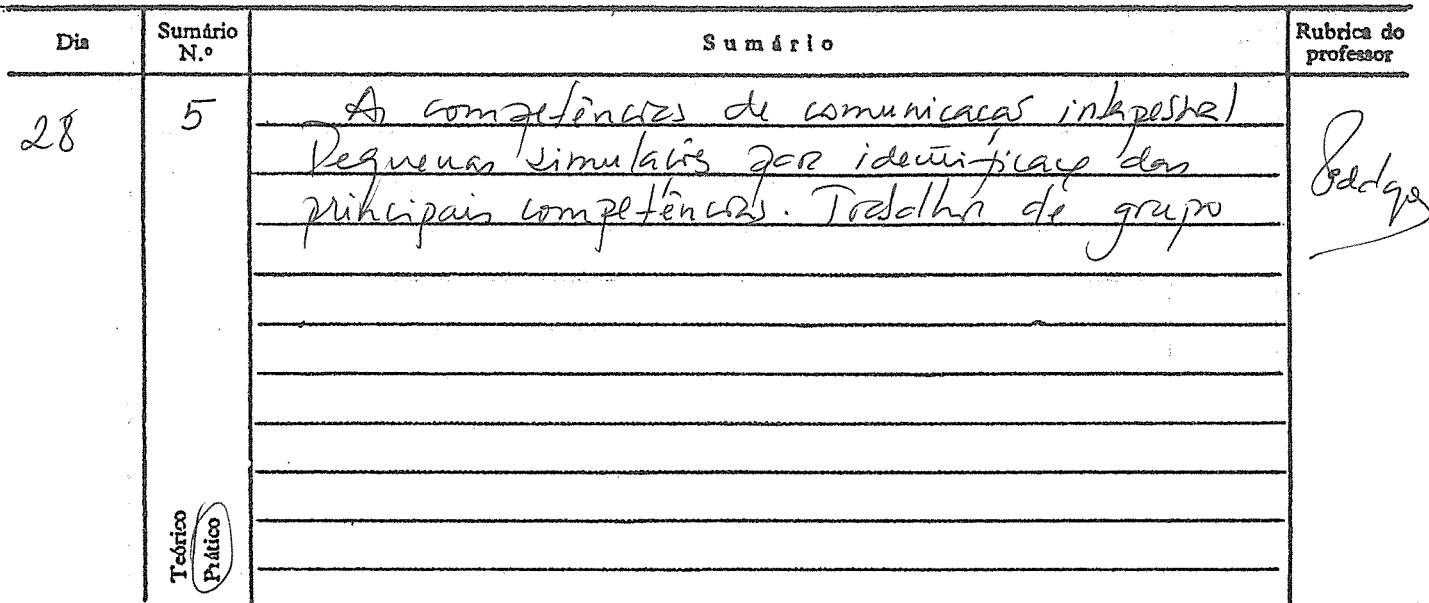 Dia
Sumário N.º
Sumário
Rubrica do professor
28
5
As competências de comunicação interpessoal
Pequenas simulações para identificação das
principais competências. Trabalho de grupo
Teórico
Prático